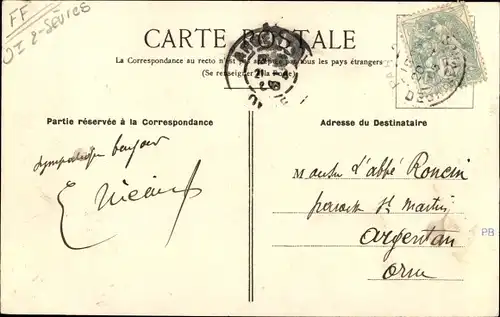 FF
2-Sèvres
CARTE POSTALE
La Correspondance au recto n'est pas acceptée par tous les pays étrangers
(Se renseigner à la Poste)
Partie réservée à la Correspondance
Adresse du Destinataire
sympathique bonjour
E
Monsieur l'abbé Roncin
paroisse St Martin
Argentan
Orne
PB